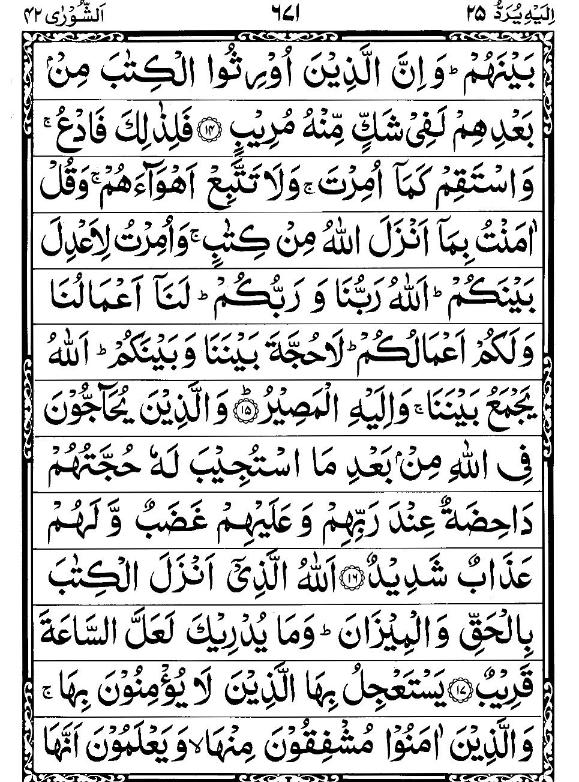 اِلَیْهِ یُرَدُّ ۲۵ ٦٧١ اَلشُّوْرٰی ۴۲
بَیْنَهُمْ ؕ وَ اِنَّ الَّذِیْنَ اُوْرِثُوا الْكِتٰبَ مِنْۢ
بَعْدِهِمْ لَفِیْ شَكٍّ مِّنْهُ مُرِیْبٍ ﴿۱۴﴾ فَلِذٰلِكَ فَادْعُ ۚ
وَ اسْتَقِمْ كَمَاۤ اُمِرْتَ ۚ وَ لَا تَتَّبِعْ اَهْوَآءَهُمْ ۚ وَ قُلْ
اٰمَنْتُ بِمَاۤ اَنْزَلَ اللّٰهُ مِنْ كِتٰبٍ ۚ وَ اُمِرْتُ لِاَعْدِلَ
بَیْنَكُمْ ؕ اَللّٰهُ رَبُّنَا وَ رَبُّكُمْ ؕ لَنَاۤ اَعْمَالُنَا
وَ لَكُمْ اَعْمَالُكُمْ ؕ لَا حُجَّةَ بَیْنَنَا وَ بَیْنَكُمْ ؕ اَللّٰهُ
یَجْمَعُ بَیْنَنَا ۚ وَ اِلَیْهِ الْمَصِیْرُ ﴿ؕ۱۵﴾ وَ الَّذِیْنَ یُحَآجُّوْنَ
فِی اللّٰهِ مِنْۢ بَعْدِ مَا اسْتُجِیْبَ لَهٗ حُجَّتُهُمْ
دَاحِضَةٌ عِنْدَ رَبِّهِمْ وَ عَلَیْهِمْ غَضَبٌ وَّ لَهُمْ
عَذَابٌ شَدِیْدٌ ﴿۱۶﴾ اَللّٰهُ الَّذِیْۤ اَنْزَلَ الْكِتٰبَ
بِالْحَقِّ وَ الْمِیْزَانَ ؕ وَ مَا یُدْرِیْكَ لَعَلَّ السَّاعَةَ
قَرِیْبٌ ﴿۱۷﴾ یَسْتَعْجِلُ بِهَا الَّذِیْنَ لَا یُؤْمِنُوْنَ بِهَا ۚ
وَ الَّذِیْنَ اٰمَنُوْا مُشْفِقُوْنَ مِنْهَا ۙ وَ یَعْلَمُوْنَ اَنَّهَا